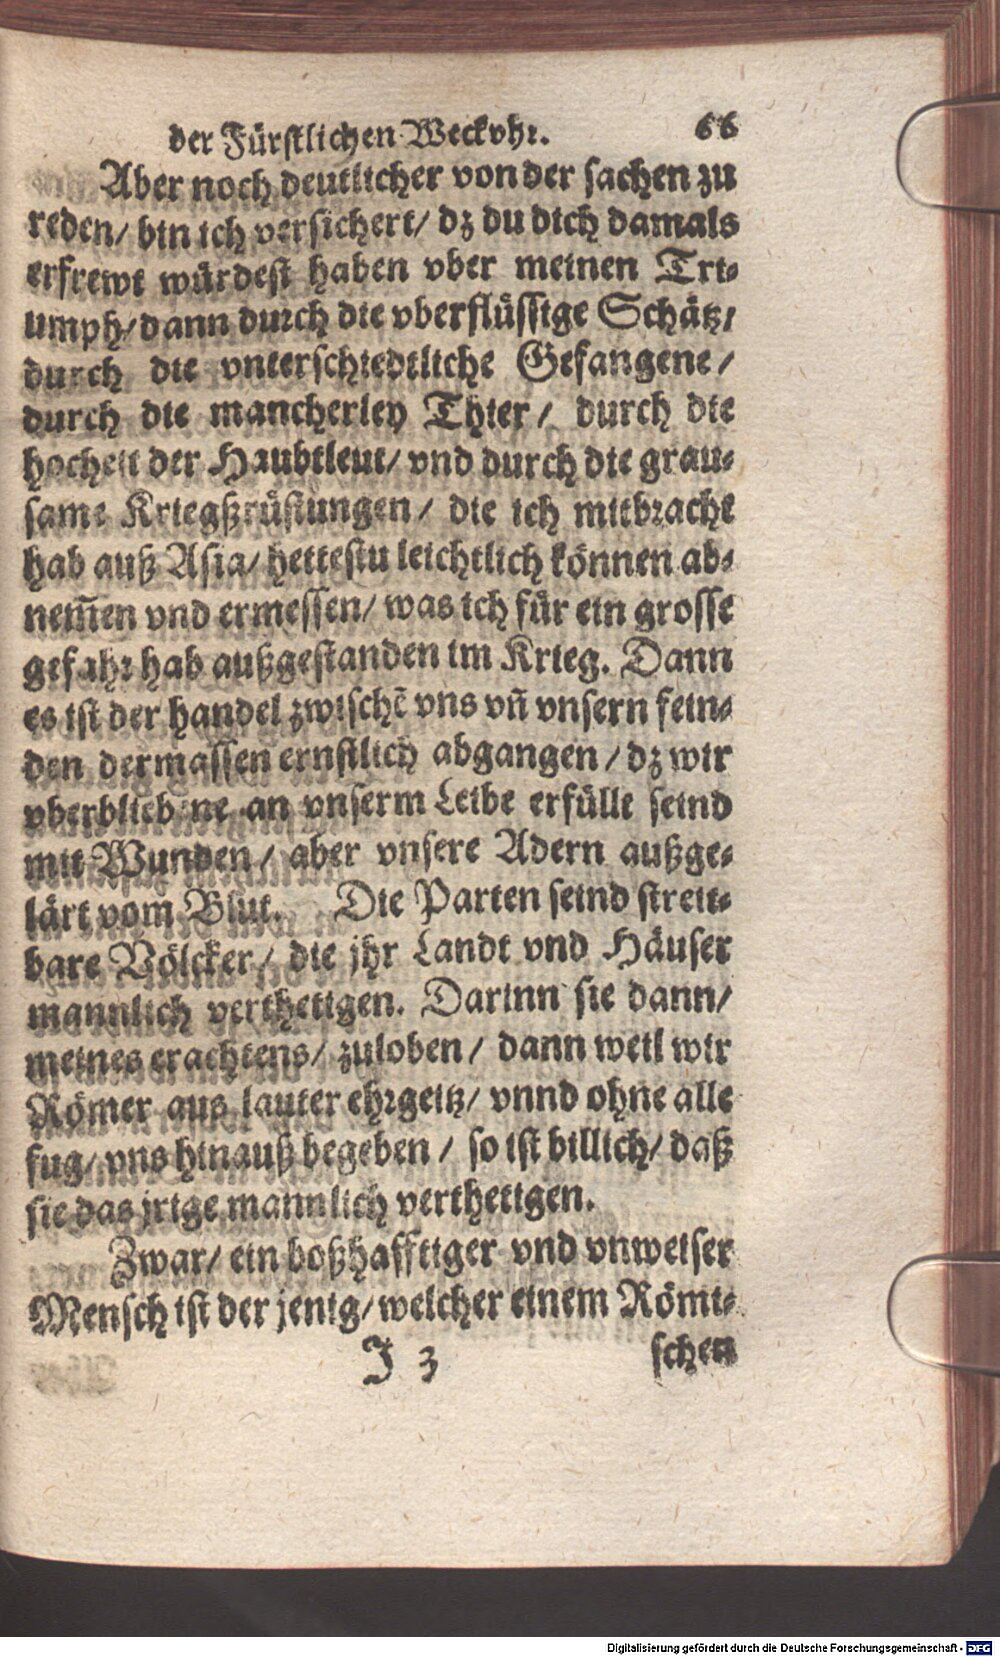 der Fürstlichen Weckvhr. 66
Aber noch deutlicher von der sachen zu
reden/ bin ich versichert/ dz du dich damals
erfrewt würdest haben vber meinen Tri-
umph/ dann durch die vberflüssige Schätz/
durch die vnterschiedtliche Gefangene/
durch die mancherley Thier/ durch die
hocheit der Haubtleut/ vnd durch die grau-
same Kriegßrüstungen/ die ich mitbracht
hab auß Asia/ hettestu leichtlich können ab-
nem̃en vnd ermessen/ was ich für ein grosse
gefahr hab außgestanden im Krieg. Dann
es ist der handel zwischẽ vns vñ vnsern fein-
den dermassen ernstlich abgangen/ dz wir
vberbliebene an vnserm Leibe erfüllt seind
mit Wunden/ aber vnsere Adern außge-
lärt vom Blut. Die Parten seind streit-
bare Völcker/ die jhr Landt vnd Häuser
mannlich vertheitigen. Darinn sie dann/
meines erachtens/ zuloben/ dann weil wir
Römer aus lauter ehrgeitz/ vnnd ohne alle
fug/ vns hinauß begeben/ so ist billich/ daß
sie das jrige mannlich vertheitigen.
Zwar/ ein boßhafftiger vnd vnweiser
Mensch ist der jenig/ welcher einem Römi-
J 3 schen
Digitalisierung gefördert durch die Deutsche Forschungsgemeinschaft - DFG